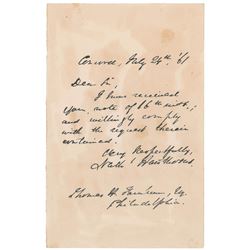 Concord, July 24th '61
Dear Sir,
I have received
your note of 16th inst.,
and willingly comply
with the request therein
contained.
Very Respectfully,
Nathl Hawthorne
Thomas H.
Philadelphia.